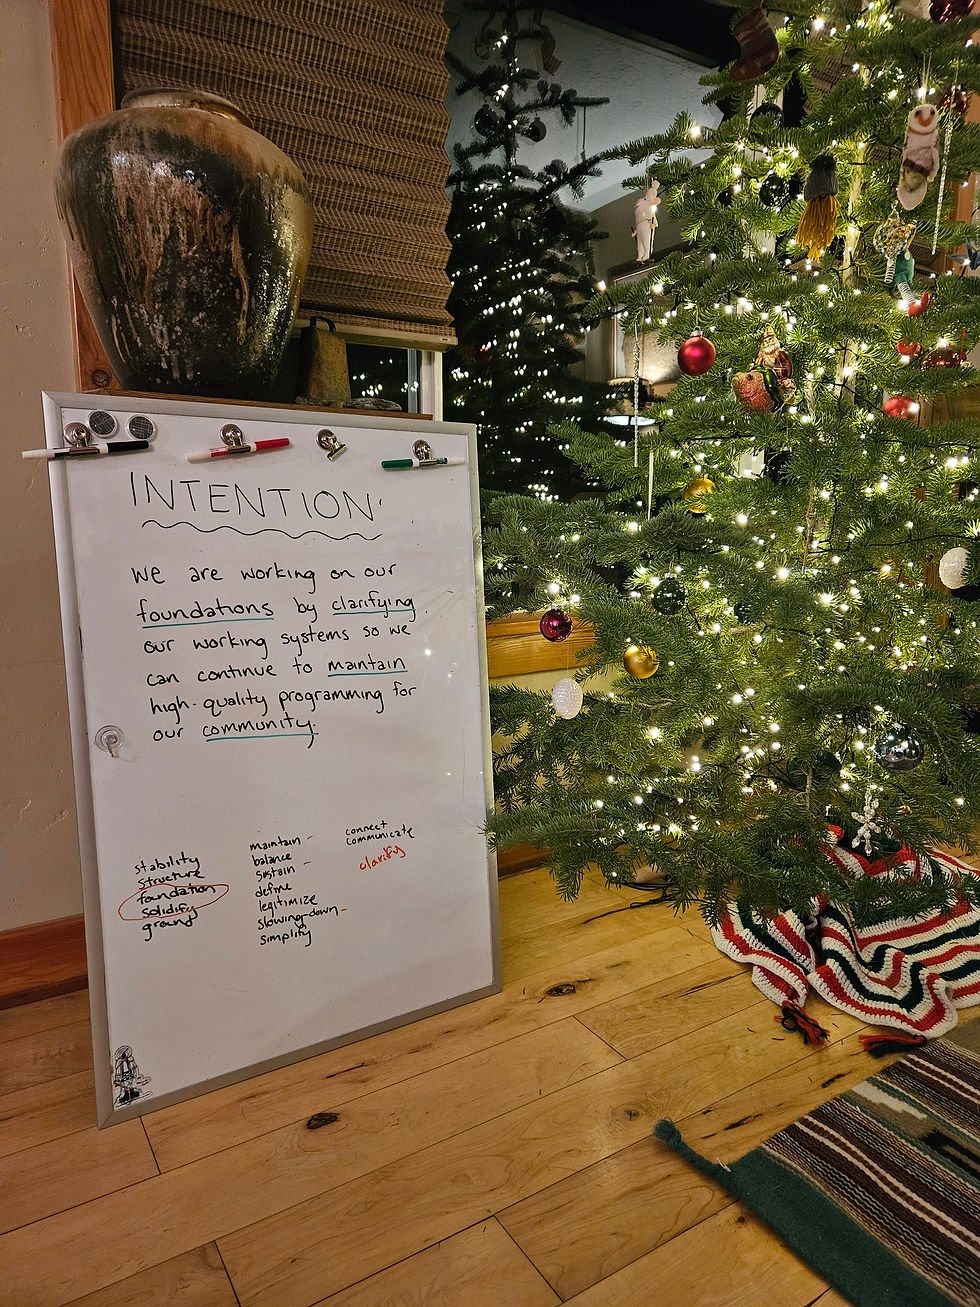 INTENTION
we are working on our
foundations by clarifying
our working systems so we
can continue to maintain
high-quality programming for
our community.
stability
structure
foundation
solidify
ground
maintain -
balance
sustain -
define
legitimize
slowing-down -
simplify
connect
communicate
clarify